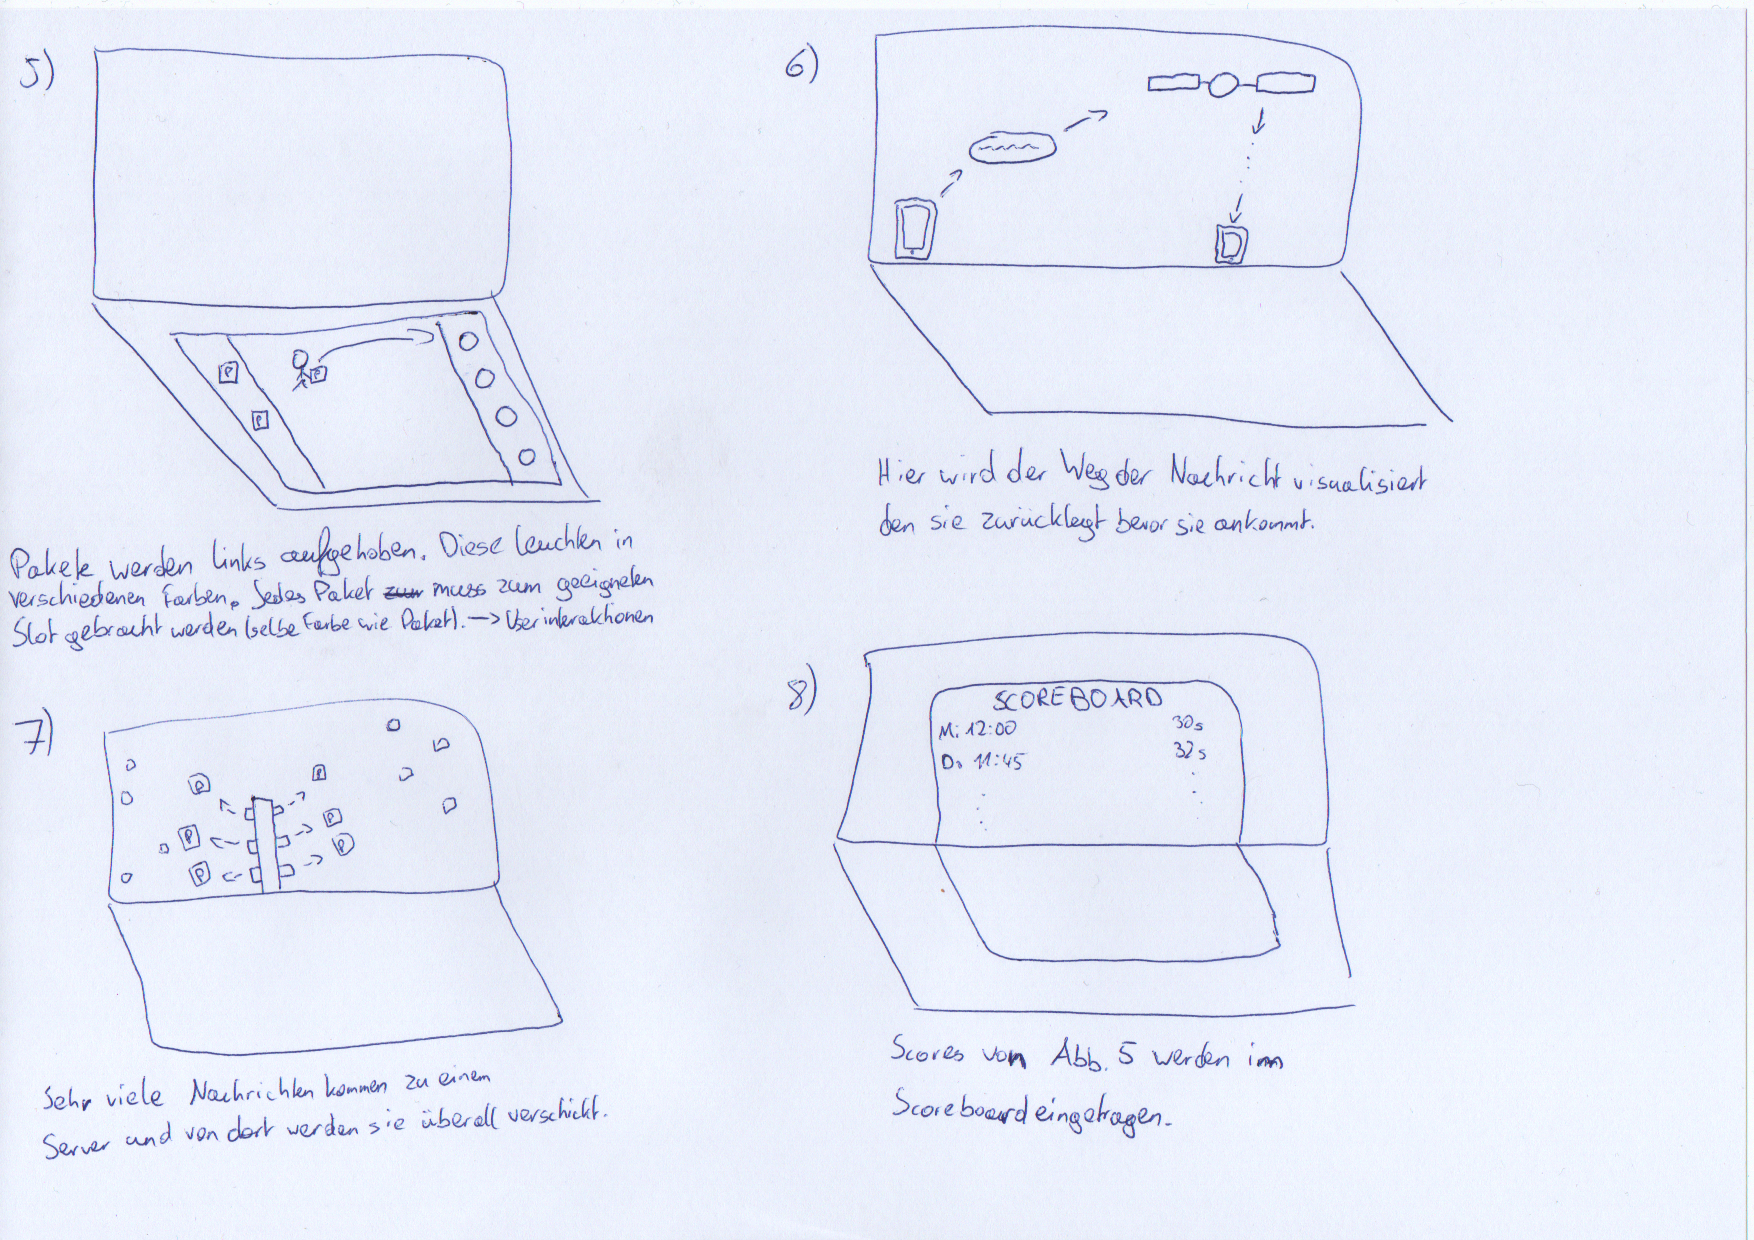 5)
P
P
P
Pakete werden links aufgehoben. Diese leuchten in
verschiedenen Farben. Jedes Paket zur muss zum geeigneten
Slot gebracht werden (selbe Farbe wie Paket). → Userinteraktionen
6)
Hier wird der Weg der Nachricht visualisiert
den sie zurücklegt bevor sie ankommt.
7)
P
P
P
P
P
P
Sehr viele Nachrichten kommen zu einem
Server und von dort werden sie überall verschickt.
8)
SCOREBOARD
Mi 12:00 30s
Do 11:45 32s
Scores von Abb. 5 werden im
Scoreboard eingetragen.